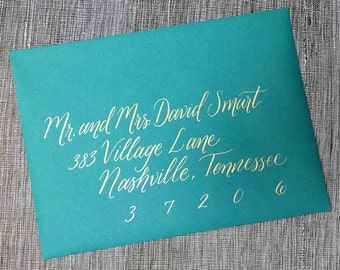 Mr. and Mrs. David Smart
383 Village Lane
Nashville, Tennessee
3 7 2 0 6